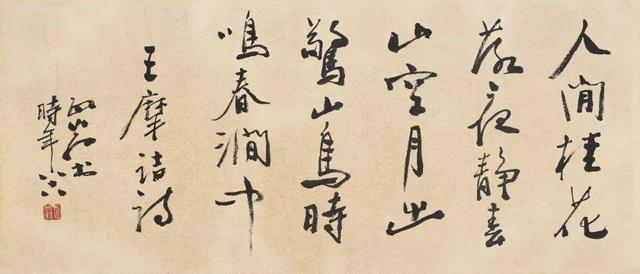 人閒桂花
落夜靜春
山空月出
驚山鳥時
鳴春澗中
王摩詰詩
書
時年